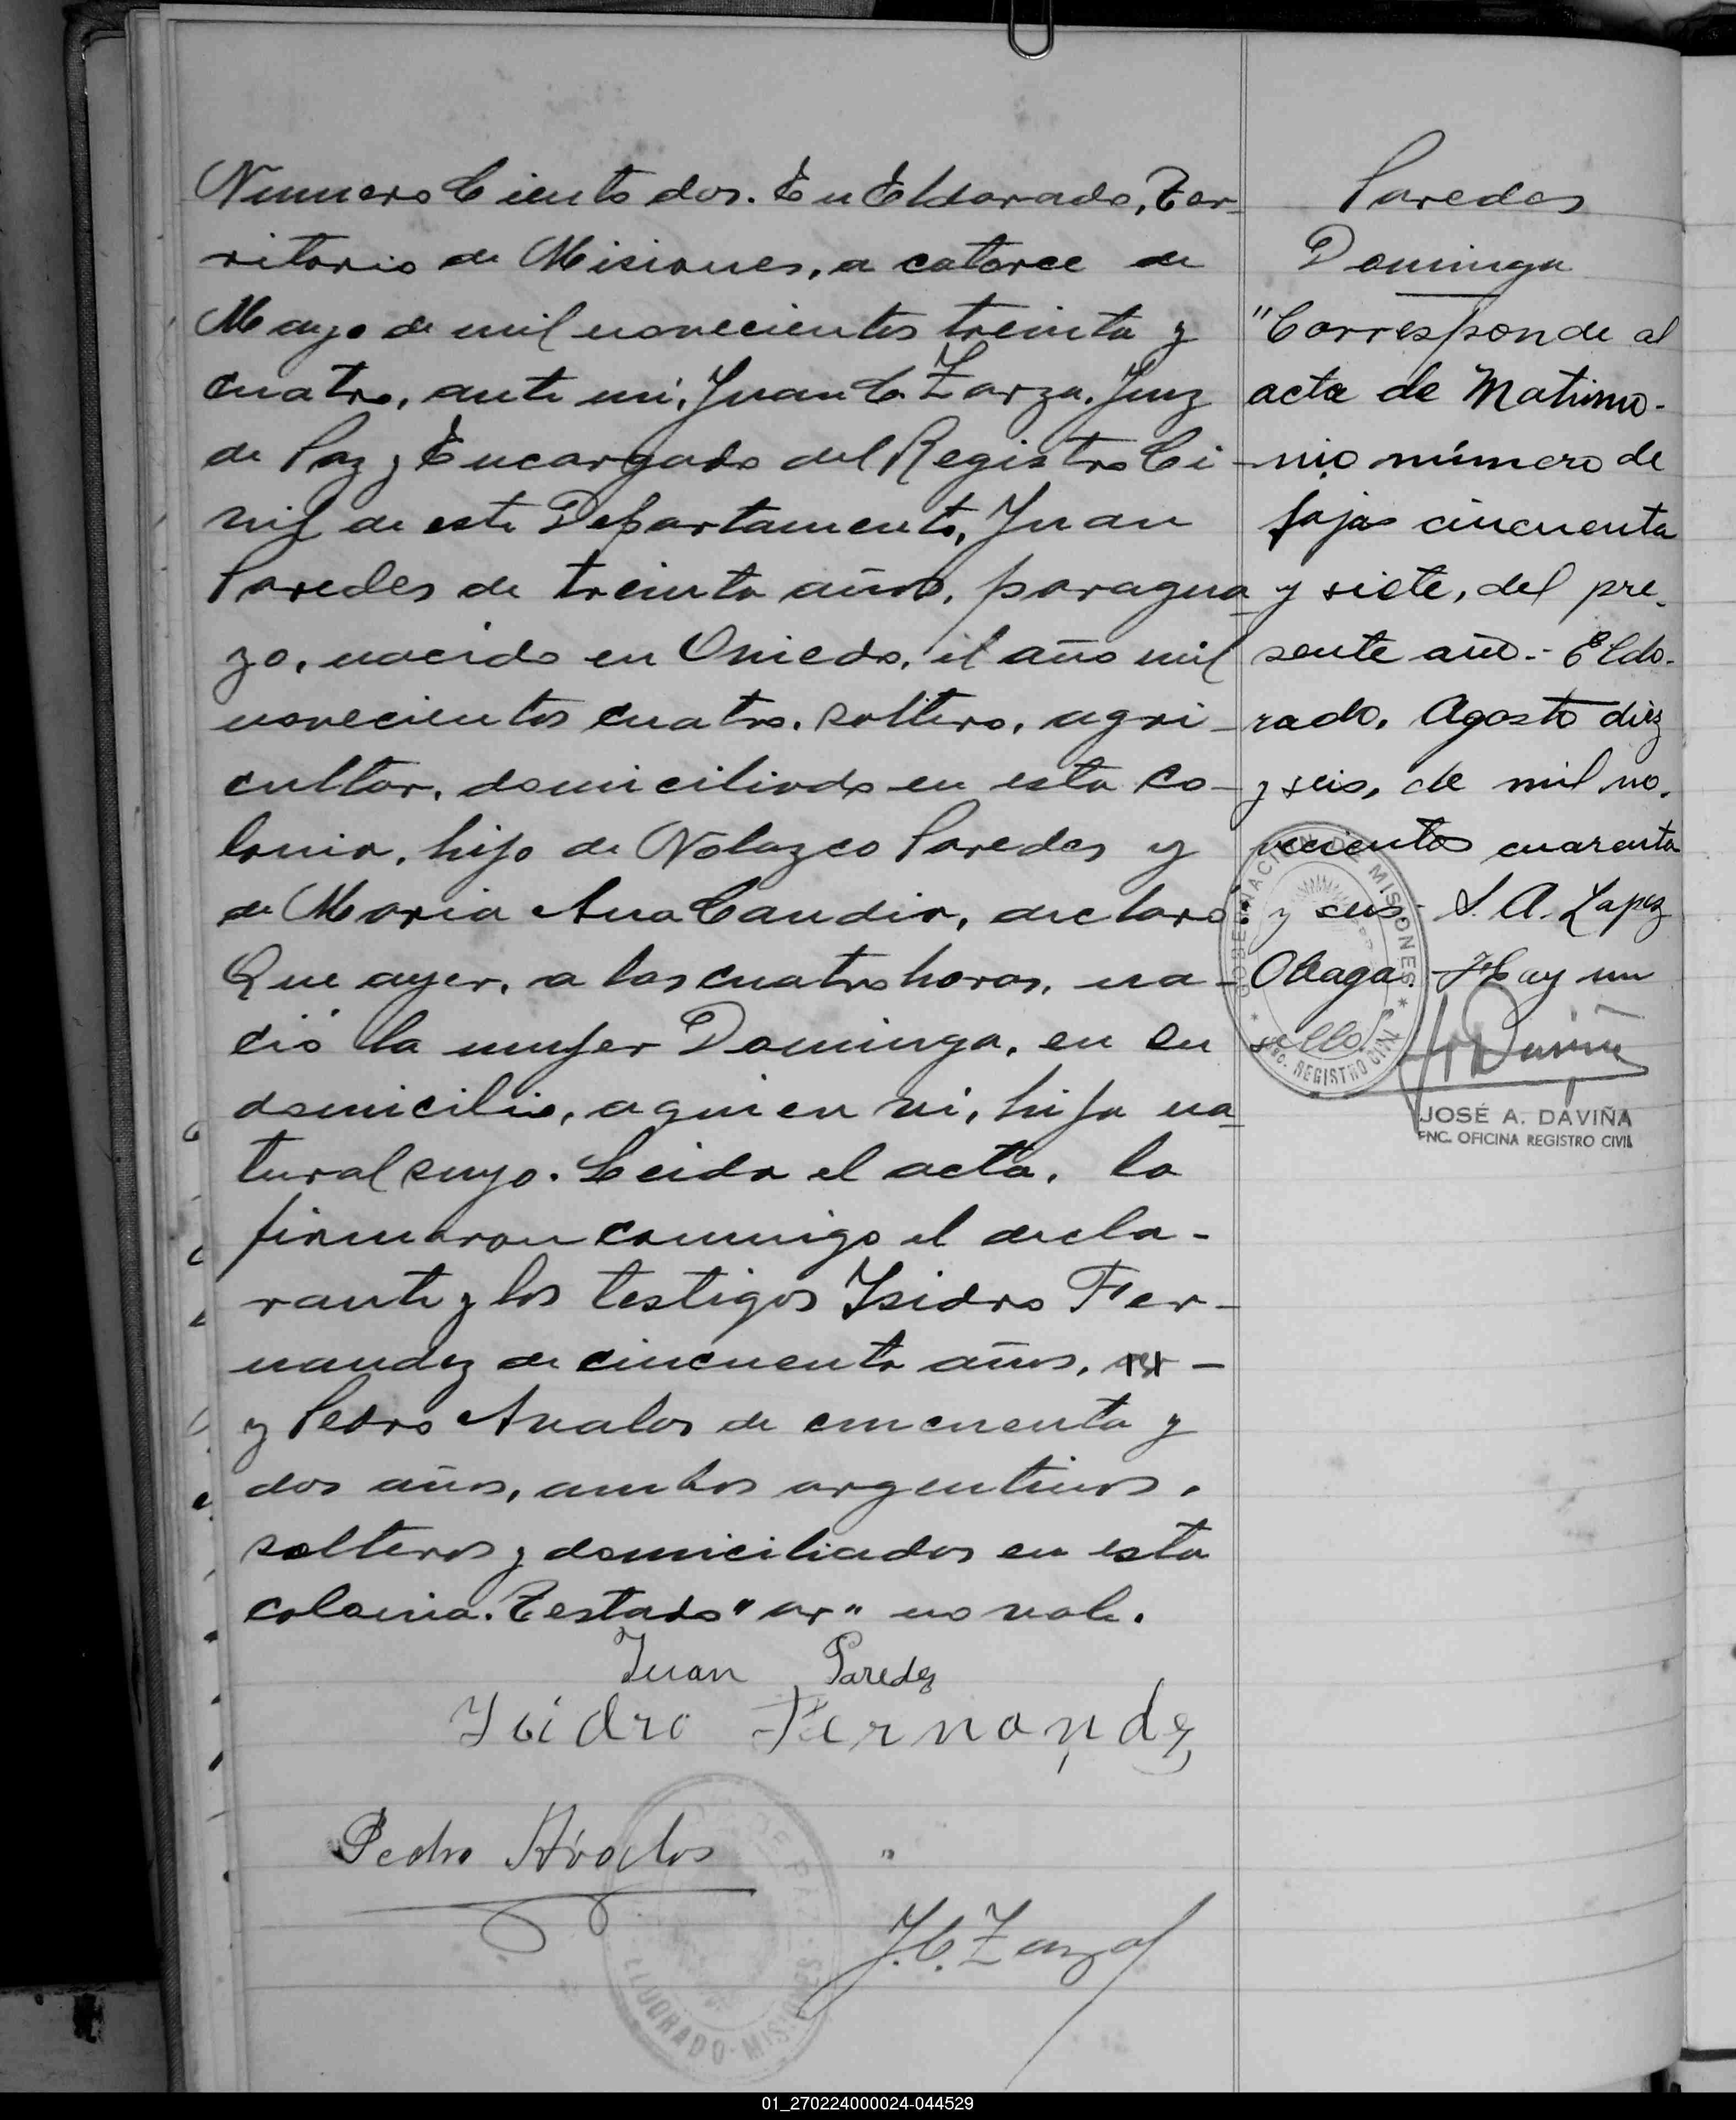 Numero Ciento dos. En Eldorado, Ter-
ritorio de Misiones, a catorce de
Mayo de mil novecientos treinta y
cuatro, ante mi, Juan C. Zarza, Juez
de Paz y Encargado del Registro Ci-
vil de este Departamento, Juan
Paredes de treinta años, paragua-
yo, nacido en Oviedo, el año mil
novecientos cuatro, soltero, agri-
cultor, domiciliado en esta co-
lonia, hijo de Nolazco Paredes y
de Maria Ana Candia, declaró:
Que ayer, a las cuatro horas, na-
ció la mujer Dominga, en su
domicilio, a quien vi, hija na-
tural suya. Leida el acta, la
firmaron conmigo el decla-
rante y los testigos Isidro Fer-
nandez de cincuenta años,
y Pedro Avalos de cincuenta y
dos años, ambos argentinos,
solteros y domiciliados en esta
colonia. Testado "ar" no vale.
Juan Paredes
Isidro Fernandez
Pedro Avalos
J. C. Zarza
ELDORADO - MISIONES
Paredes
Dominga
"Corresponde al
acta de Matrimo-
nio número de
fojas cincuenta
y siete, del pre-
sente año.- Eldo-
rado, Agosto diez
y seis, de mil no-
vecientos cuarenta
y seis- S. A. Lopez
Hay un
sello.
GOBERNACION DE MISIONES
REGISTRO CIVIL
JOSÉ A. DAVIÑA
ENC. OFICINA REGISTRO CIVIL
01_270224000024-044529